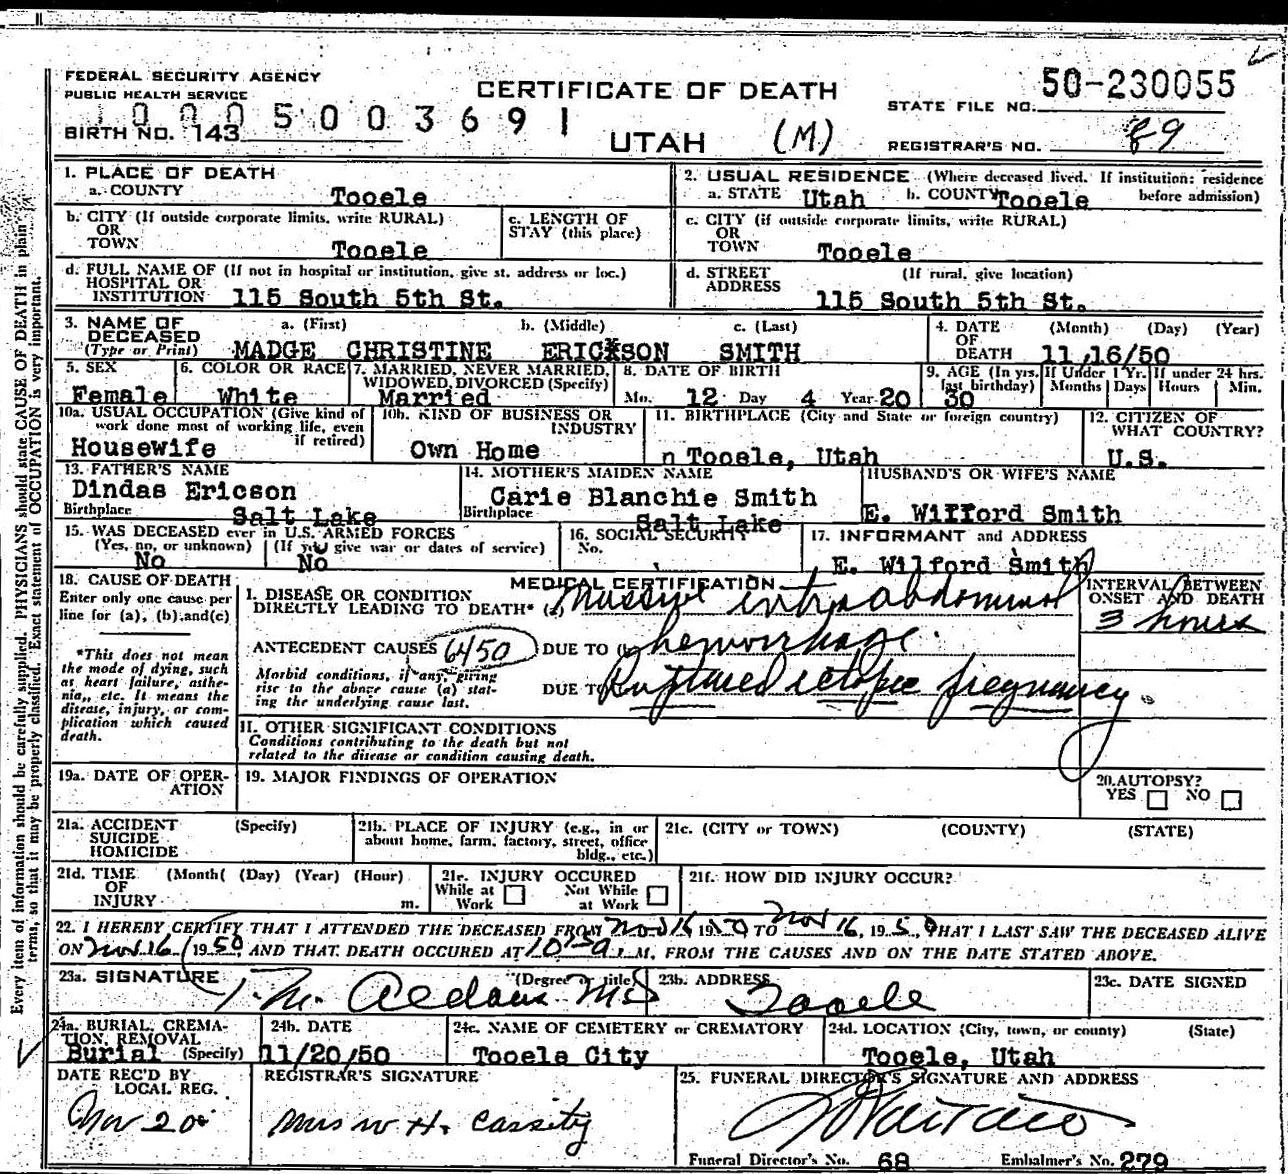 FEDERAL SECURITY AGENCY
PUBLIC HEALTH SERVICE
CERTIFICATE OF DEATH
STATE FILE NO. 50-230055
10005003691
BIRTH NO. 143
UTAH (M)
REGISTRAR'S NO. 89
1. PLACE OF DEATH
a. COUNTY Tooele
2. USUAL RESIDENCE (Where deceased lived. If institution: residence before admission)
a. STATE Utah b. COUNTY Tooele
b. CITY (If outside corporate limits, write RURAL)
OR
TOWN Tooele
c. LENGTH OF
STAY (this place)
c. CITY (if outside corporate limits, write RURAL)
OR
TOWN Tooele
d. FULL NAME OF (If not in hospital or institution, give st. address or loc.)
HOSPITAL OR
INSTITUTION 115 South 5th St.
d. STREET (If rural, give location)
ADDRESS 115 South 5th St.
3. NAME OF
DECEASED
(Type or Print)
a. (First) b. (Middle) c. (Last)
MADGE CHRISTINE ERICKSON SMITH
4. DATE
OF
DEATH
(Month) (Day) (Year)
11/16/50
5. SEX
Female
6. COLOR OR RACE
White
7. MARRIED, NEVER MARRIED,
WIDOWED, DIVORCED (Specify)
Married
8. DATE OF BIRTH
Mo. 12 Day 4 Year 20
9. AGE (In yrs. last birthday)
30
If Under 1 Yr.
Months Days
If under 24 hrs.
Hours Min.
10a. USUAL OCCUPATION (Give kind of
work done most of working life, even
if retired)
Housewife
10b. KIND OF BUSINESS OR
INDUSTRY
Own Home
11. BIRTHPLACE (City and State or foreign country)
n Tooele, Utah
12. CITIZEN OF
WHAT COUNTRY?
U.S.
13. FATHER'S NAME
Dindas Ericson
Birthplace Salt Lake
14. MOTHER'S MAIDEN NAME
Carie Blanchie Smith
Birthplace Salt Lake
HUSBAND'S OR WIFE'S NAME
E. Wilford Smith
15. WAS DECEASED ever in U.S. ARMED FORCES
(Yes, no, or unknown) (If you give war or dates of service)
No No
16. SOCIAL SECURITY
No.
17. INFORMANT and ADDRESS
E. Wilford Smith
18. CAUSE OF DEATH
Enter only one cause per
line for (a), (b) and (c)
*This does not mean
the mode of dying, such
as heart failure, asthe-
nia, etc. It means the
disease, injury, or com-
plication which caused
death.
MEDICAL CERTIFICATION
I. DISEASE OR CONDITION
DIRECTLY LEADING TO DEATH* (a) Massive intra abdominal
ANTECEDENT CAUSES 6450 DUE TO (b) hemorrhage.
Morbid conditions, if any, giving
rise to the above cause (a) stat-
ing the underlying cause last.
DUE TO Ruptured ectopic pregnancy.
INTERVAL BETWEEN
ONSET AND DEATH
3 hours
II. OTHER SIGNIFICANT CONDITIONS
Conditions contributing to the death but not
related to the disease or condition causing death.
19a. DATE OF OPER-
ATION
19. MAJOR FINDINGS OF OPERATION
20. AUTOPSY?
YES NO
21a. ACCIDENT (Specify)
SUICIDE
HOMICIDE
21b. PLACE OF INJURY (e.g., in or
about home, farm, factory, street, office
bldg., etc.)
21c. (CITY or TOWN) (COUNTY) (STATE)
21d. TIME (Month( (Day) (Year) (Hour)
OF
INJURY m.
21e. INJURY OCCURED
While at Work Not While at Work
21f. HOW DID INJURY OCCUR?
22. I HEREBY CERTIFY THAT I ATTENDED THE DECEASED FROM Nov 16 1950 TO Nov 16, 1950, THAT I LAST SAW THE DECEASED ALIVE
ON Nov 16 1950, AND THAT DEATH OCCURED AT M, FROM THE CAUSES AND ON THE DATE STATED ABOVE.
23a. SIGNATURE (Degree or title)
T.M. Aldous MD
23b. ADDRESS
Tooele
23c. DATE SIGNED
24a. BURIAL, CREMA-
TION, REMOVAL
Burial (Specify)
24b. DATE
11/20/50
24c. NAME OF CEMETERY or CREMATORY
Tooele City
24d. LOCATION (City, town, or county) (State)
Tooele, Utah
DATE REC'D BY
LOCAL REG.
Nov 20
REGISTRAR'S SIGNATURE
Mrs W H. Cassity
25. FUNERAL DIRECTOR'S SIGNATURE AND ADDRESS
Funeral Director's No. 68 Embalmer's No. 279
Every item of information should be carefully supplied. PHYSICIANS should state CAUSE OF DEATH in plain
terms, so that it may be properly classified. Exact statement of OCCUPATION is very important.